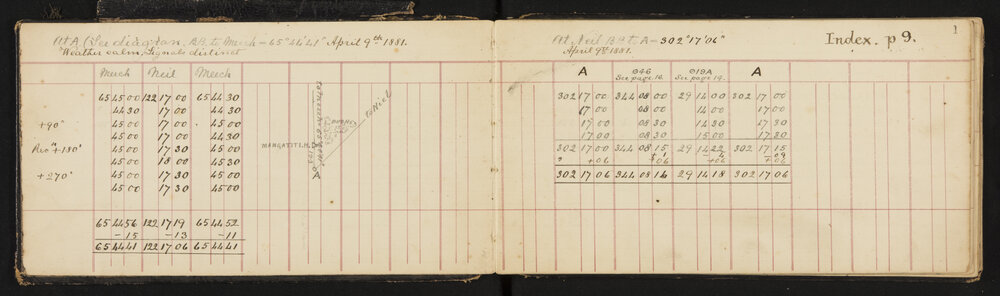 At A (See diagram, BB. to Meech - 65° 44' 41" April 9th 1881.
"Weather calm, Signals distinct
Meech Neil Meech
65 45 00 122 17 00 65 44 30
44 30 17 00 44 30
+90° 45 00 17 00 44 30
45 00 17 00 44 30
Rev" +180° 45 00 17 30 45 00
45 00 18 00 45 30
+270° 45 00 17 30 45 00
45 00 17 30 45 00
65 44 56 122 17 19 65 44 52
-15 -13 -11
65 44 41 122 17 06 65 44 41
MANGATITI.H.D.
to Neil
1
At Neil BB to A - 302° 17' 06"
April 9th 1881.
Index. p 9.
A 046 019A A
See page 16. See page 14.
302 17 00 344 08 00 29 14 00 302 17 00
17 00 08 00 14 00 17 00
17 00 08 30 14 30 17 30
17 00 08 30 15 00 17 30
302 17 00 344 08 15 29 14 22 302 17 15
+06
302 17 06 344 08 14 29 14 18 302 17 06